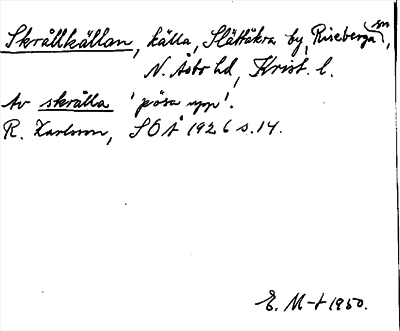 Skrållkällan, källa, Slättåkra by, Riseberga sn,
N. Åsbo hd, Krist. l.
Av skrålla 'pösa upp'.
R. Karlsson, SOÅ 1926 s. 14.
E. M-t 1950.